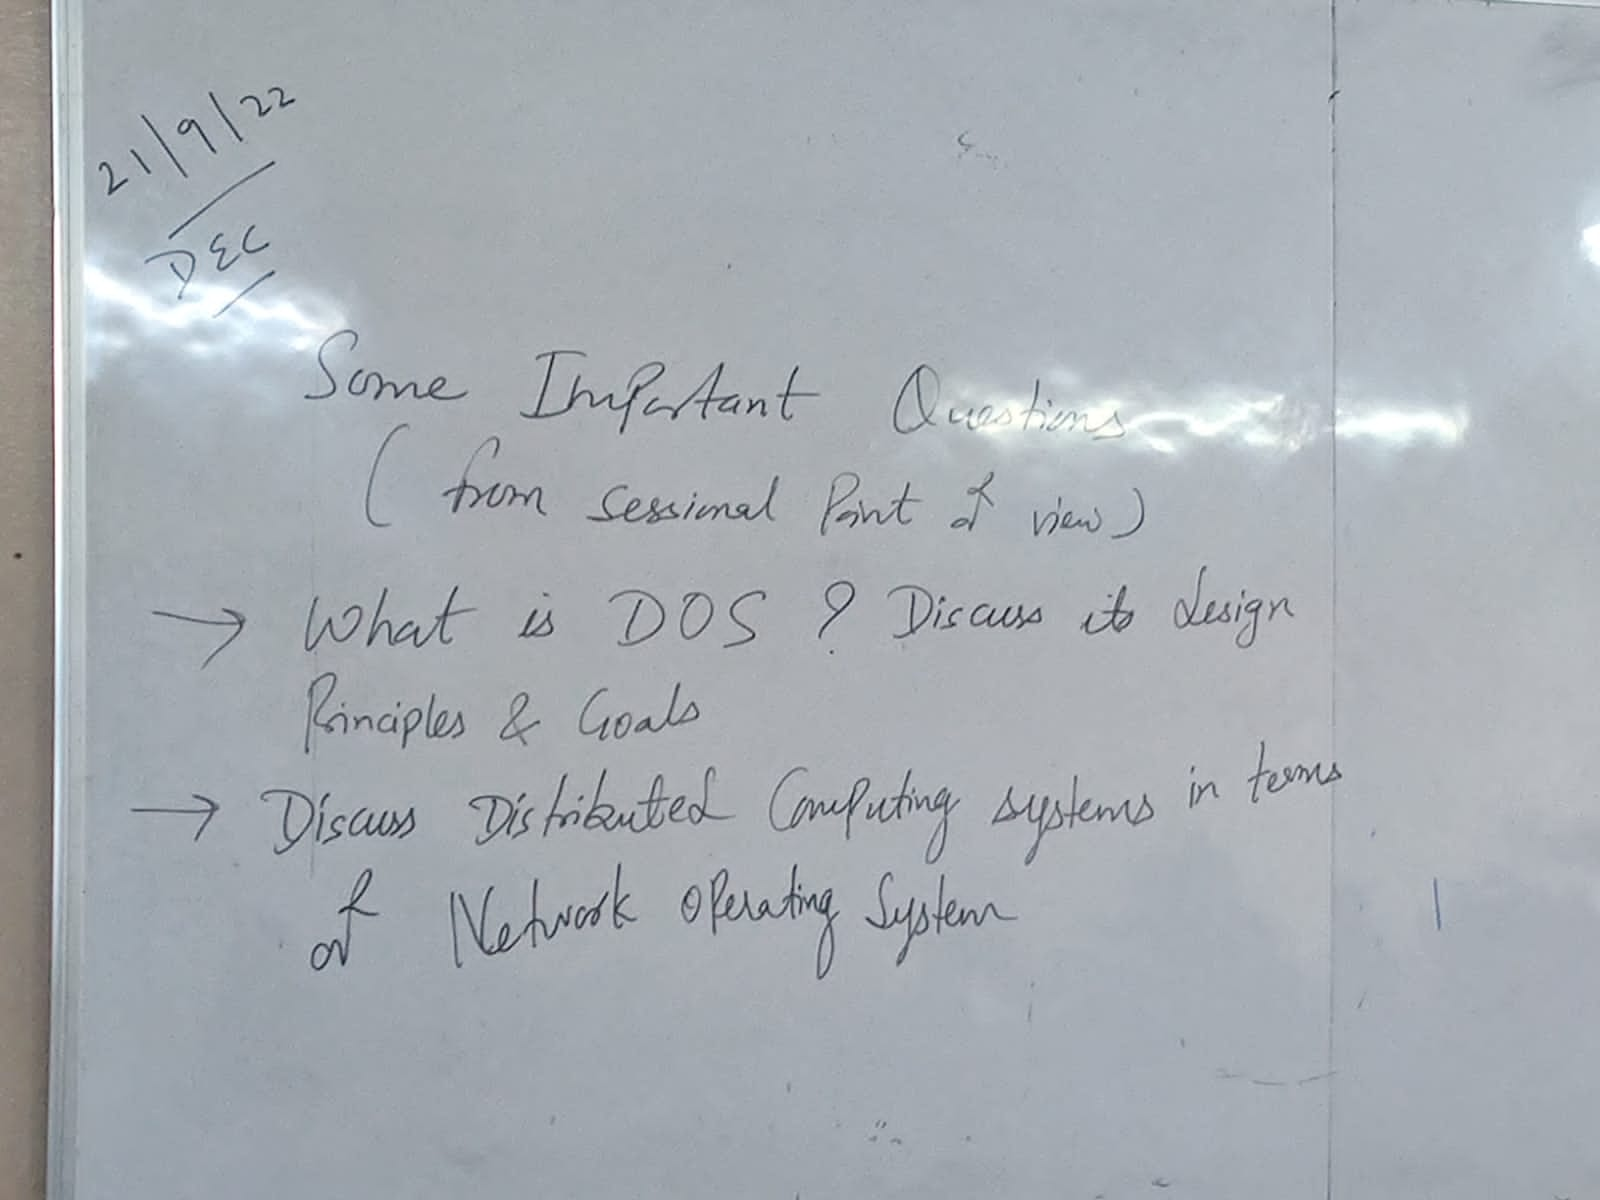 21/9/22
DEC
Some Important Questions
(from sessional Point of view)
→ What is DOS? Discuss its design
Principles & Goals
→ Discuss Distributed Computing systems in terms
of Network Operating System